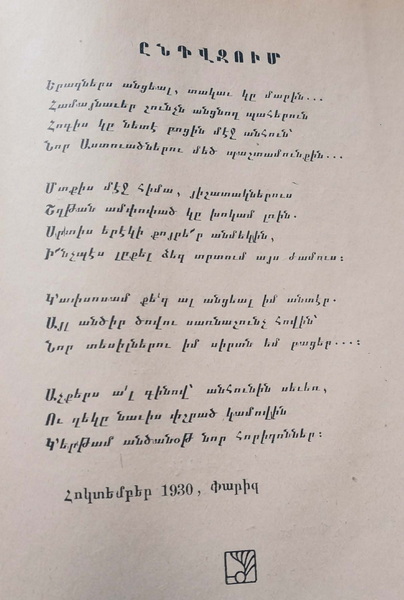 ԸՆԴՎԶՈՒՄ
Երազներս անցեալ, տակաւ կը մարին...
Համայնաւեր շունչն անցնող պահերուն
Հոգիս կը նետէ բոցին մէջ անհուն՝
Նոր Աստուածներու մեծ պաշտամունքին...
Մտքիս մէջ հիմա, յիշատակներուս
Շղթան ամփոփած կը խոկամ լռին.
Սրտիս երէկի քոյրե՛ր անմեկին,
Ի՜նչպէս լըքել ձեզ տրտում այս ժամուս:
Կ'ափսոսամ քե՛զ ալ անցեալ իմ անտէր.
Այլ անծիր ծովու սառնաշունչ հովին՝
Նոր տեսիլներու իմ սիրտն եմ բացեր...:
Աչքերս ա՛լ գինով՝ անհունին սեւեռ,
Ու ղեկը նաւիս փշրած կամովին
Կ'երթամ անծանօթ նոր հորիզոններ:
Հոկտեմբեր 1930, Փարիզ